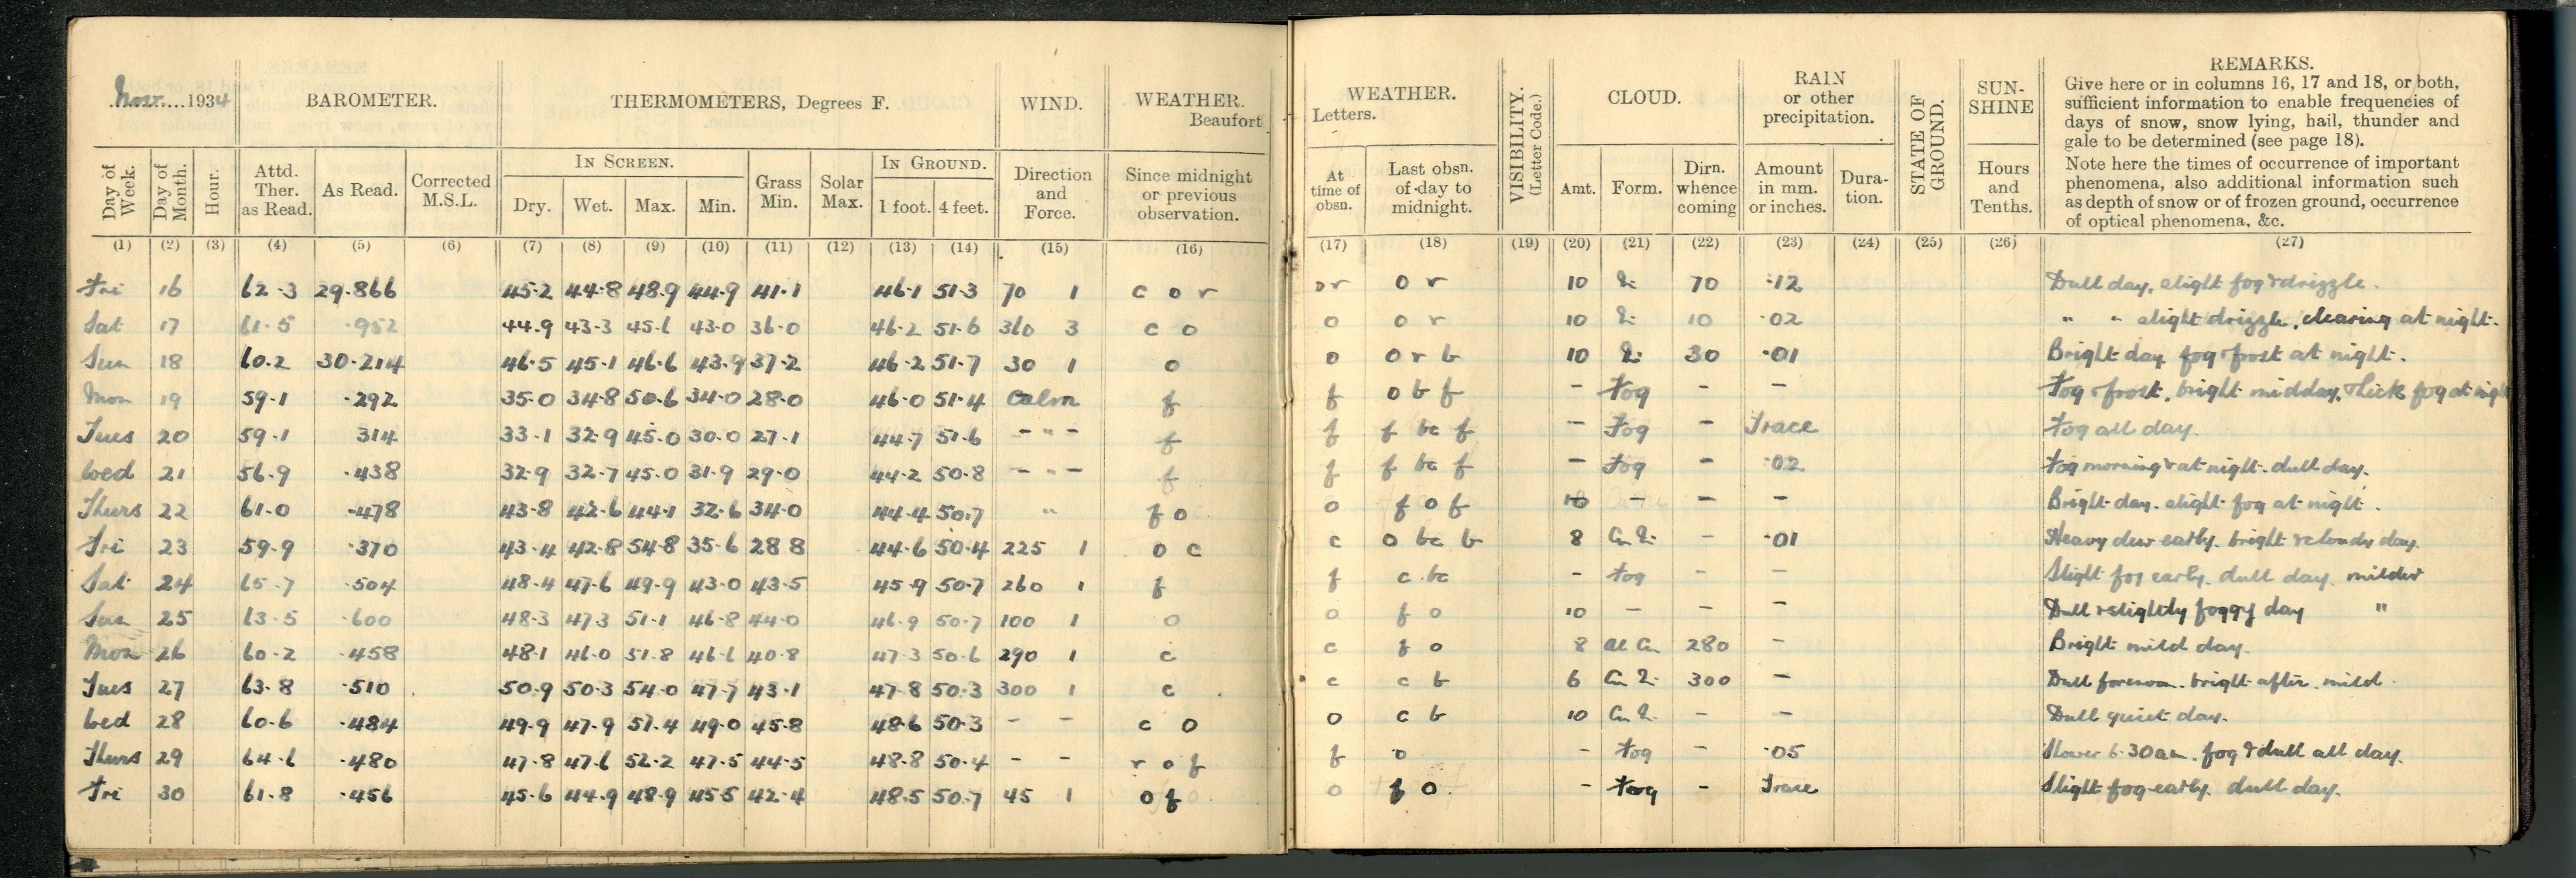 Nov. 1934 BAROMETER. THERMOMETERS, Degrees F. WIND. WEATHER. Beaufort
Day of Week. Day of Month. Hour. Attd. Ther. as Read. As Read. Corrected M.S.L. IN SCREEN. Dry. Wet. Max. Min. Grass Min. Solar Max. IN GROUND. 1 foot. 4 feet. Direction and Force. Since midnight or previous observation.
(1) (2) (3) (4) (5) (6) (7) (8) (9) (10) (11) (12) (13) (14) (15) (16)
Fri 16 62.3 29.866 45.2 44.8 48.9 44.9 41.1 46.1 51.3 70 1 c o r
Sat 17 61.5 .952 44.9 43.3 45.1 43.0 36.0 46.2 51.6 360 3 c o
Sun 18 60.2 30.214 46.5 45.1 46.6 43.9 37.2 46.2 51.7 30 1 o
Mon 19 59.1 .292 35.0 34.8 50.6 34.0 28.0 46.0 51.4 Calm f
Tues 20 59.1 314 33.1 32.9 45.0 30.0 27.1 44.7 51.6 – " – f
Wed 21 56.9 .438 32.9 32.7 45.0 31.9 29.0 44.2 50.8 – " – f
Thurs 22 61.0 .478 43.8 42.6 44.1 32.6 34.0 44.4 50.7 " f o
Fri 23 59.9 .370 43.4 42.8 54.8 35.6 28.8 44.6 50.4 225 1 o c
Sat 24 65.7 .504 48.4 47.6 49.9 43.0 43.5 45.9 50.7 260 1 f
Sun 25 63.5 .600 48.3 47.3 51.1 46.8 44.0 46.9 50.7 100 1 o
Mon 26 60.2 .458 48.1 46.0 51.8 46.1 40.8 47.3 50.6 290 1 c
Tues 27 63.8 .510 50.9 50.3 54.0 47.7 43.1 47.8 50.3 300 1 c
Wed 28 60.6 .484 49.9 47.9 51.4 49.0 45.8 48.6 50.3 – – c o
Thurs 29 64.6 .480 47.8 47.6 52.2 47.5 44.5 48.8 50.4 – – r o f
Fri 30 61.8 .456 45.6 44.9 48.9 45.5 42.4 48.5 50.7 45 1 o f
WEATHER. Letters. VISIBILITY. (Letter Code.) CLOUD. RAIN or other precipitation. STATE OF GROUND. SUN-SHINE REMARKS.
Give here or in columns 16, 17 and 18, or both,
sufficient information to enable frequencies of
days of snow, snow lying, hail, thunder and
gale to be determined (see page 18).
Note here the times of occurrence of important
phenomena, also additional information such
as depth of snow or of frozen ground, occurrence
of optical phenomena, &c.
At time of obsn. Last obsn. of day to midnight. Amt. Form. Dirn. whence coming Amount in mm. or inches. Dura-tion. Hours and Tenths.
(17) (18) (19) (20) (21) (22) (23) (24) (25) (26) (27)
or o r 10 70 .12 Dull day, slight fog & drizzle.
o o r 10 10 .02 " " slight drizzle, clearing at night.
o o r b 10 30 .01 Bright day fog & frost at night.
f o b f – Fog – – Fog & frost, bright midday, thick fog at night
f f bc f – Fog – Trace Fog all day.
f f bc f – Fog – .02 Fog morning & at night. dull day.
o f o f 10 – – – Bright day. slight fog at night.
c o bc b 8 – .01 Heavy dew early. bright & cloudy day.
f c bc – fog – – Slight fog early. dull day. milder
o f o 10 – – – Dull & slightly foggy day "
c f o 8 Al Cu 280 – Bright mild day.
c c b 6 300 – Dull forenoon. bright after. mild.
o c b 10 – – Dull quiet day.
f o – Fog – .05 Shower 6.30am. fog & dull all day.
o f o – Fog – Trace Slight fog early. dull day.